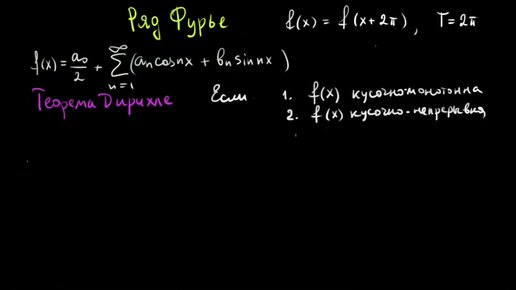 Ряд Фурье f(x) = f(x+2π), T=2π
f(x)= a₀/2 + ∑_{n=1}^{∞} (aₙcosnx + bₙsinnx)
Теорема Дирихле Если 1. f(x) кусочномонотонна
2. f(x) кусочно-непрерывна